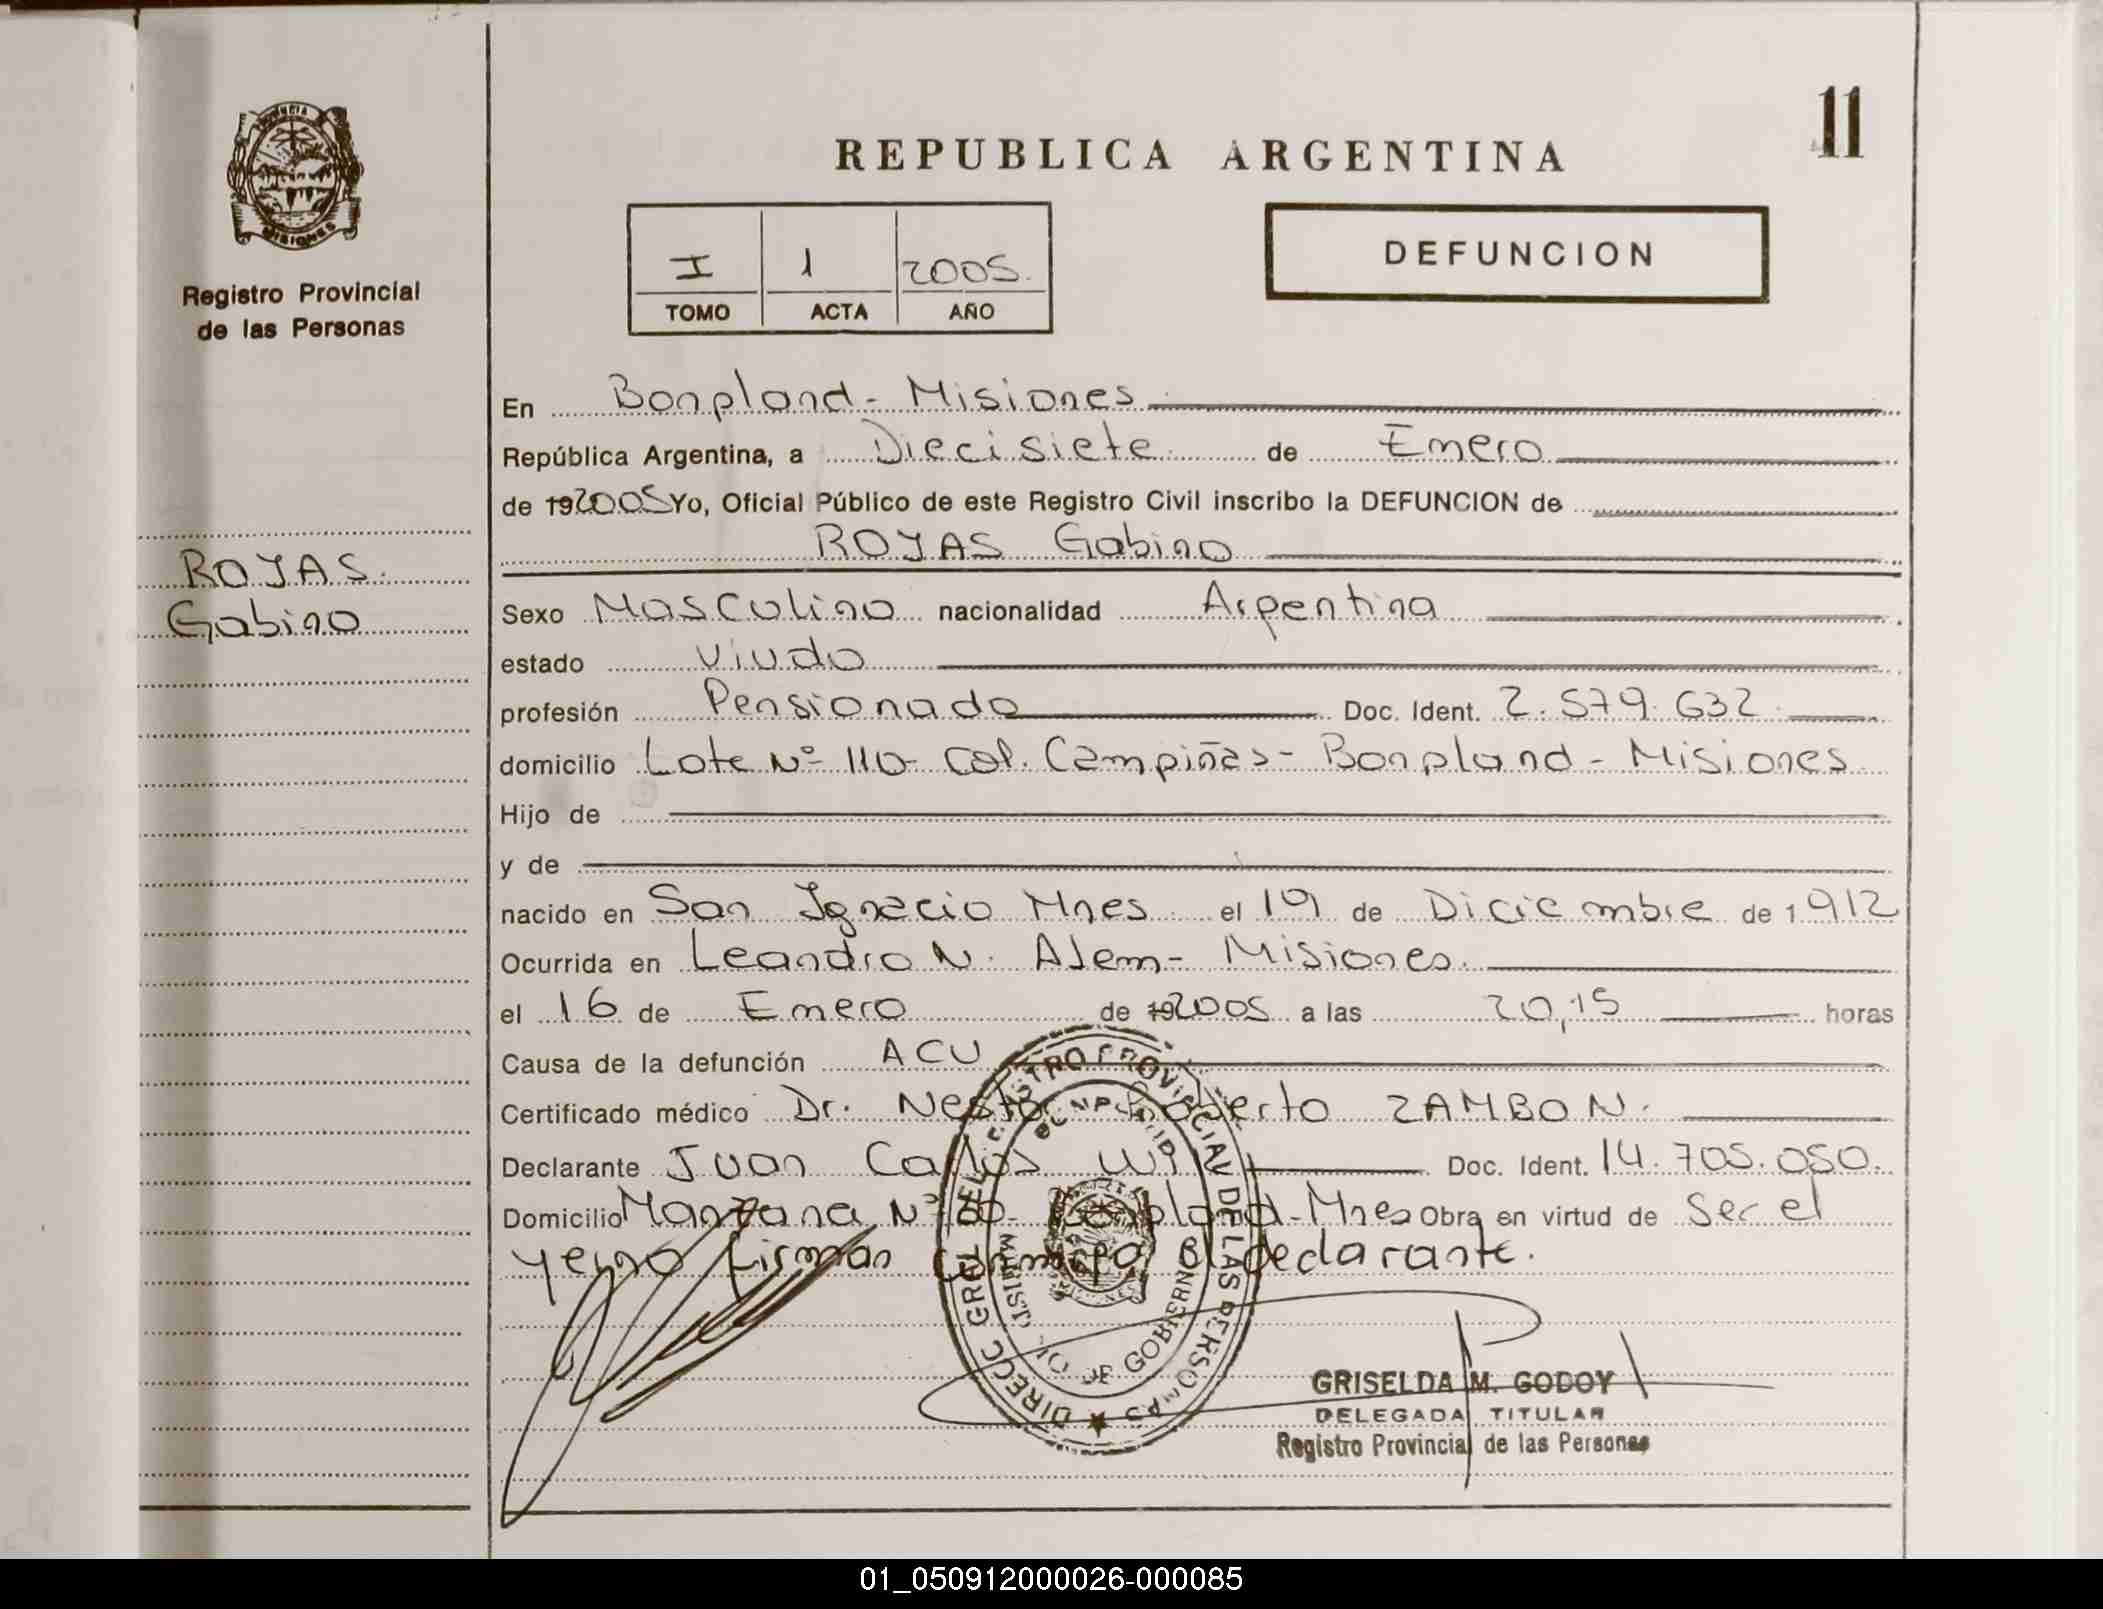 11
REPUBLICA ARGENTINA
PROVINCIA
MISIONES
Registro Provincial
de las Personas
I 1 2005.
TOMO ACTA AÑO
DEFUNCION
En Bonpland - Misiones
República Argentina, a Diecisiete de Enero
de 192005 Yo, Oficial Público de este Registro Civil inscribo la DEFUNCION de
ROJAS Gabino
ROJAS.
Gabino
Sexo Masculino nacionalidad Argentina
estado Viudo
profesión Pensionado Doc. Ident. 2.579.632
domicilio Lote Nº 110- Col. Campiñas - Bonpland - Misiones
Hijo de
y de
nacido en San Ignacio Mnes el 19 de Diciembre de 1912
Ocurrida en Leandro N. Alem - Misiones.
el 16 de Enero de 192005 a las 20,15 horas
Causa de la defunción ACU
Certificado médico Dr. Nestor Roberto ZAMBON.
Declarante Juan Carlos Doc. Ident. 14.705.050.
Domicilio Manzana Nº Bonpland - Mnes Obra en virtud de Ser el
yerno firman conmigo El declarante.
DIRECC GRAL DEL REGISTRO PROVINCIAL DE LAS PERSONAS
MINISTERIO DE GOBIERNO
GRISELDA M. GODOY
DELEGADA TITULAR
Registro Provincial de las Personas
01_050912000026-000085